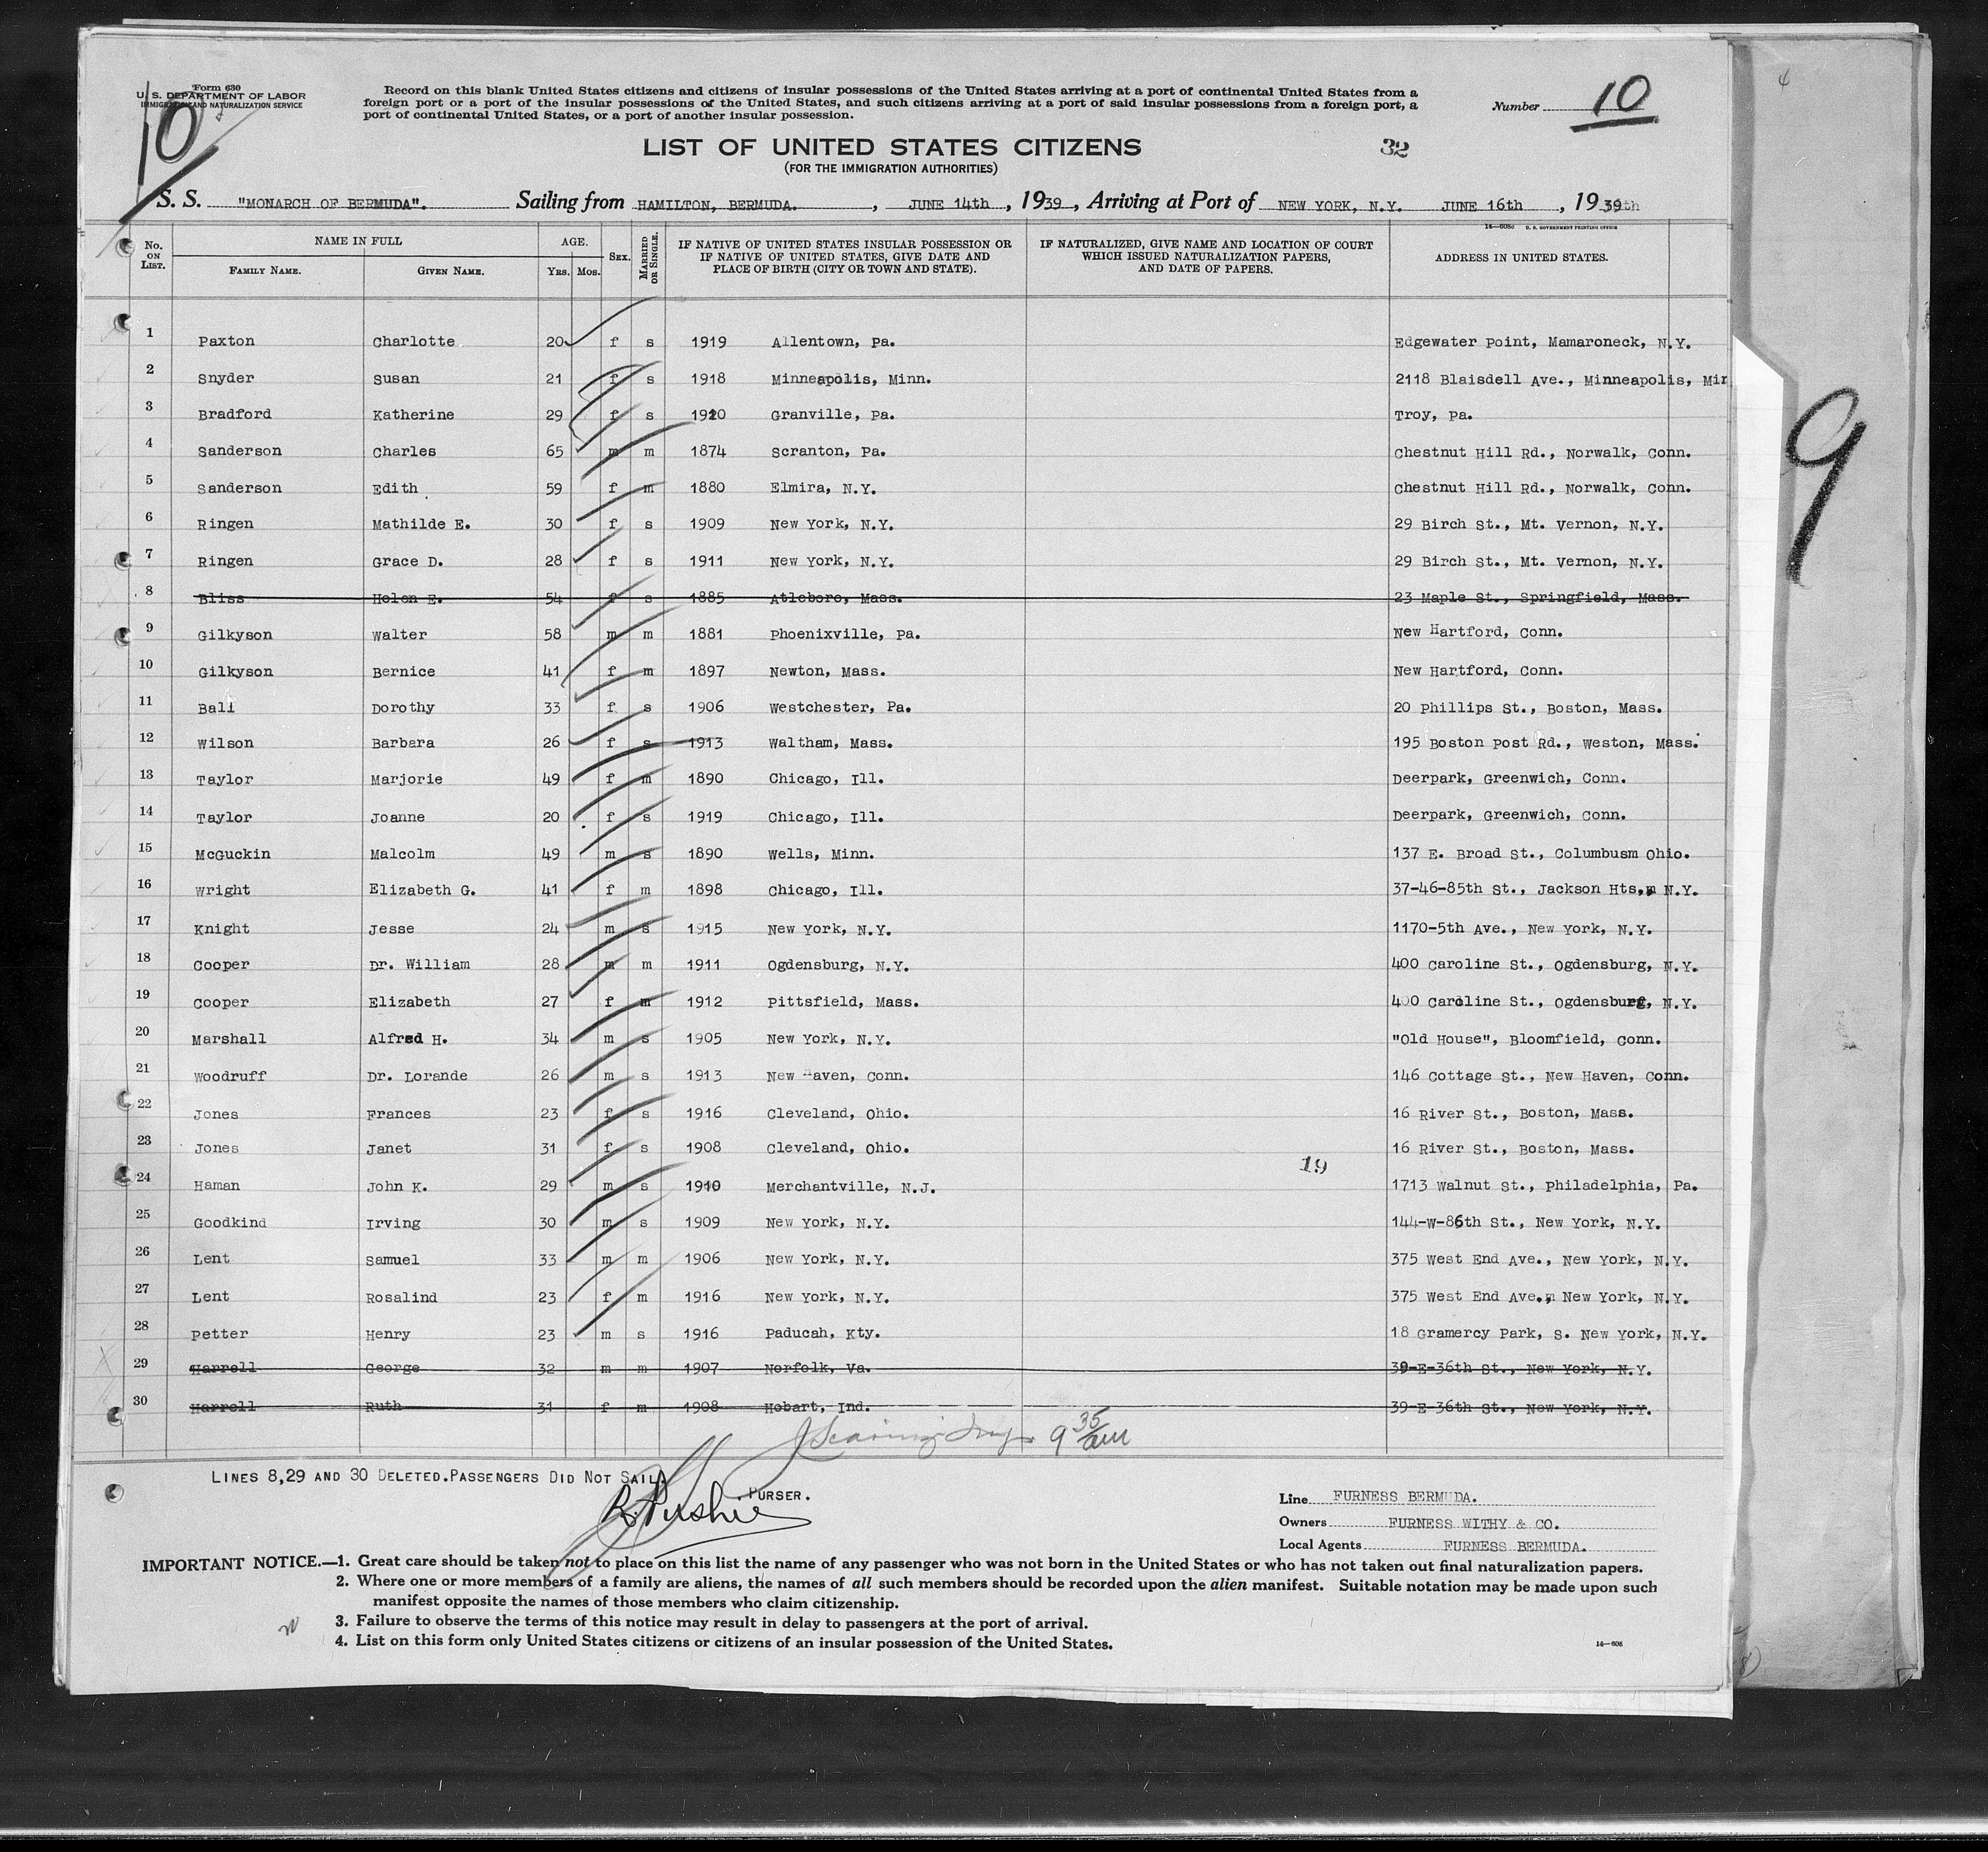 Form 630
U. S. DEPARTMENT OF LABOR
IMMIGRATION AND NATURALIZATION SERVICE
10
Record on this blank United States citizens and citizens of insular possessions of the United States arriving at a port of continental United States from a
foreign port or a port of the insular possessions of the United States, and such citizens arriving at a port of said insular possessions from a foreign port, a
port of continental United States, or a port of another insular possession.
Number 10
LIST OF UNITED STATES CITIZENS
32
(FOR THE IMMIGRATION AUTHORITIES)
S. S. "MONARCH OF BERMUDA". Sailing from HAMILTON, BERMUDA. , JUNE 14th , 1939 , Arriving at Port of NEW YORK, N.Y. JUNE 16th , 1939
U. S. GOVERNMENT PRINTING OFFICE
No. ON LIST. NAME IN FULL FAMILY NAME. GIVEN NAME. AGE. YRS. MOS. SEX. MARRIED OR SINGLE. IF NATIVE OF UNITED STATES INSULAR POSSESSION OR IF NATIVE OF UNITED STATES, GIVE DATE AND PLACE OF BIRTH (CITY OR TOWN AND STATE). IF NATURALIZED, GIVE NAME AND LOCATION OF COURT WHICH ISSUED NATURALIZATION PAPERS, AND DATE OF PAPERS. ADDRESS IN UNITED STATES.
1 Paxton Charlotte 20 f s 1919 Allentown, Pa. Edgewater Point, Mamaroneck, N.Y.
2 Snyder Susan 21 f s 1918 Minneapolis, Minn. 2118 Blaisdell Ave., Minneapolis, Min
3 Bradford Katherine 29 f s 1910 Granville, Pa. Troy, Pa.
4 Sanderson Charles 65 m m 1874 Scranton, Pa. Chestnut Hill Rd., Norwalk, Conn.
5 Sanderson Edith 59 f m 1880 Elmira, N.Y. Chestnut Hill Rd., Norwalk, Conn.
6 Ringen Mathilde E. 30 f s 1909 New York, N.Y. 29 Birch St., Mt. Vernon, N.Y.
7 Ringen Grace D. 28 f s 1911 New York, N.Y. 29 Birch St., Mt. Vernon, N.Y.
8 Bliss Helen E. 54 f s 1885 Atleboro, Mass. 23 Maple St., Springfield, Mass.
9 Gilkyson Walter 58 m m 1881 Phoenixville, Pa. New Hartford, Conn.
10 Gilkyson Bernice 41 f m 1897 Newton, Mass. New Hartford, Conn.
11 Ball Dorothy 33 f s 1906 Westchester, Pa. 20 Phillips St., Boston, Mass.
12 Wilson Barbara 26 f s 1913 Waltham, Mass. 195 Boston Post Rd., Weston, Mass.
13 Taylor Marjorie 49 f m 1890 Chicago, Ill. Deerpark, Greenwich, Conn.
14 Taylor Joanne 20 f s 1919 Chicago, Ill. Deerpark, Greenwich, Conn.
15 McGuckin Malcolm 49 m s 1890 Wells, Minn. 137 E. Broad St., Columbusm Ohio.
16 Wright Elizabeth G. 41 f m 1898 Chicago, Ill. 37-46-85th St., Jackson Hts., N.Y.
17 Knight Jesse 24 m s 1915 New York, N.Y. 1170-5th Ave., New York, N.Y.
18 Cooper Dr. William 28 m m 1911 Ogdensburg, N.Y. 400 Caroline St., Ogdensburg, N.Y.
19 Cooper Elizabeth 27 f m 1912 Pittsfield, Mass. 400 Caroline St., Ogdensburg, N.Y.
20 Marshall Alfred H. 34 m s 1905 New York, N.Y. "Old House", Bloomfield, Conn.
21 Woodruff Dr. Lorande 26 m s 1913 New Haven, Conn. 146 Cottage St., New Haven, Conn.
22 Jones Frances 23 f s 1916 Cleveland, Ohio. 16 River St., Boston, Mass.
23 Jones Janet 31 f s 1908 Cleveland, Ohio. 16 River St., Boston, Mass.
19
24 Haman John K. 29 m s 1910 Merchantville, N.J. 1713 Walnut St., Philadelphia, Pa.
25 Goodkind Irving 30 m s 1909 New York, N.Y. 144-W-86th St., New York, N.Y.
26 Lent Samuel 33 m m 1906 New York, N.Y. 375 West End Ave., New York, N.Y.
27 Lent Rosalind 23 f m 1916 New York, N.Y. 375 West End Ave., New York, N.Y.
28 Petter Henry 23 m s 1916 Paducah, Kty. 18 Gramercy Park, S. New York, N.Y.
29 Harrell George 32 m m 1907 Norfolk, Va. 39-E-36th St., New York, N.Y.
30 Harrell Ruth 31 f m 1908 Hobart, Ind. 39-E-36th St., New York, N.Y.
9 35 am
LINES 8,29 AND 30 DELETED.PASSENGERS DID NOT SAIL.
PURSER.
Line FURNESS BERMUDA.
Owners FURNESS WITHY & CO.
Local Agents FURNESS BERMUDA.
IMPORTANT NOTICE.—1. Great care should be taken not to place on this list the name of any passenger who was not born in the United States or who has not taken out final naturalization papers.
2. Where one or more members of a family are aliens, the names of all such members should be recorded upon the alien manifest. Suitable notation may be made upon such
manifest opposite the names of those members who claim citizenship.
3. Failure to observe the terms of this notice may result in delay to passengers at the port of arrival.
4. List on this form only United States citizens or citizens of an insular possession of the United States.
14—608
9